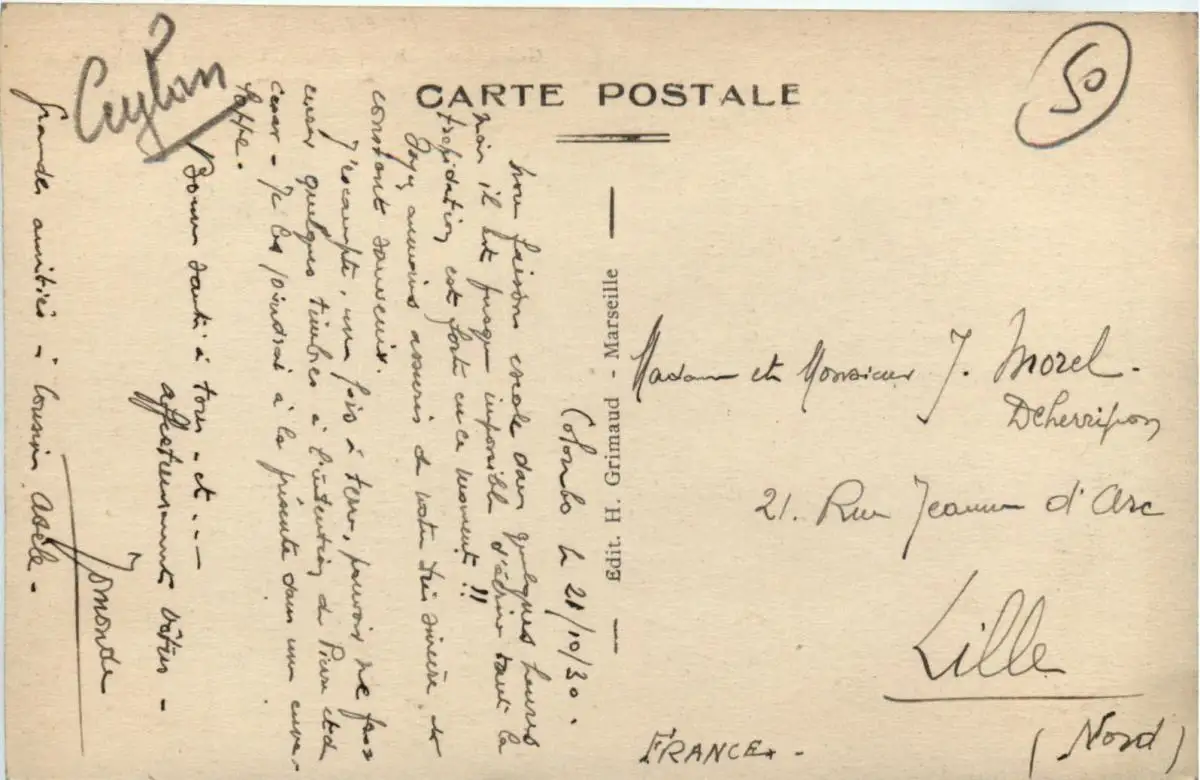 Ceylan
50
CARTE POSTALE
Colombo le 21/10/30.
Nous faisons escale dans quelques heures
mais il est presque impossible d'écrire tant la
trépidation est forte en ce moment !!
Soyez néanmoins assurés de notre très sincère et
constant souvenir.
J'escompte, une fois à terre, pouvoir me faire
quelques timbres à l'intention de Pierre et de
- Je les joindrai à la présente dans une enve-
loppe.
Bonne santé à tous - et ... -
affectueusement vôtres -
Grandes amitiés à Cousin Adèle -
Edit. H. Grimaud - Marseille
Madame et Monsieur J. Morel -
21. Rue Jeanne d'Arc
Lille
(Nord)
FRANCE -